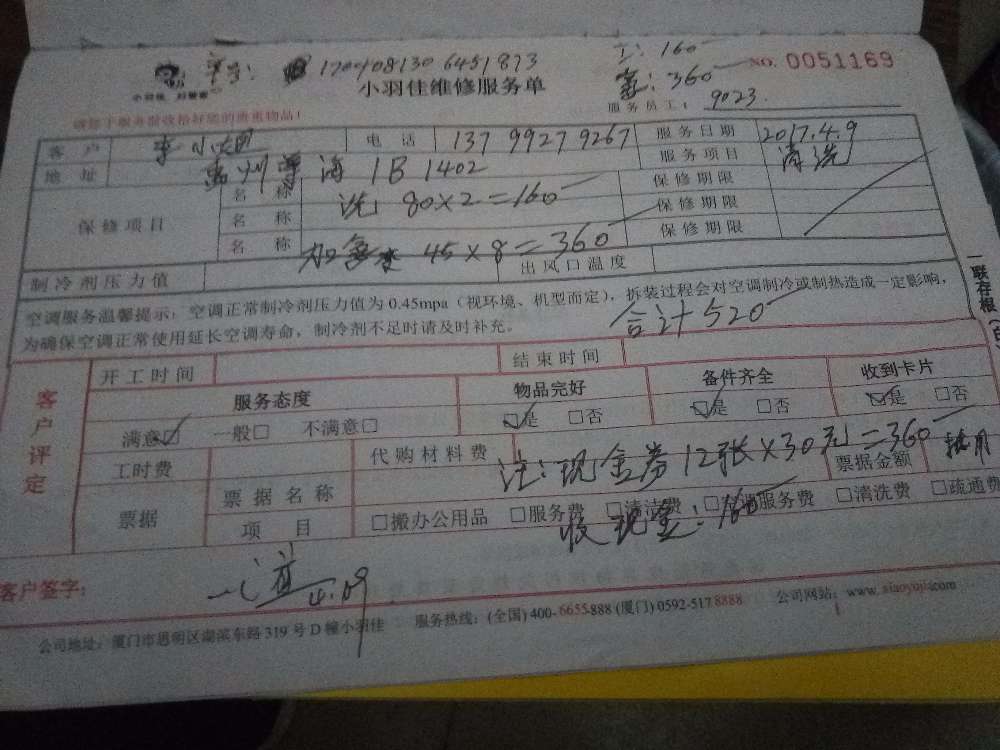 单号: 1704081306451873
工: 160
套: 360
NO. 0051169
小羽佳维修服务单
小羽佳 好管家
服务员工: 9023
客户 李小姐 电话 13799279267 服务日期 2017.4.9
地址 海 1B 1402 服务项目 清洗
保修项目
名称 洗 80×2=160 保修期限
名称 保修期限
名称 加 45×8=360 保修期限
制冷剂压力值 出风口温度
空调服务温馨提示: 空调正常制冷剂压力值为 0.45mpa (视环境、机型而定), 拆装过程会对空调制冷或制热造成一定影响,
为确保空调正常使用延长空调寿命, 制冷剂不足时请及时补充。
合计520
一联存根
客户评定
开工时间 结束时间
服务态度 物品完好 备件齐全 收到卡片
满意☑ 一般□ 不满意□ ☑是 □否 ☑是 □否 ☑是 □否
工时费 代购材料费 票据金额
注: 现金券12张×30元=360 抵用
票据 票据名称
项目 □搬办公用品 □服务费 □清洁费 服务费 □清洗费 □疏通费
收现金: 160
客户签字: 4.09
公司地址: 厦门市思明区湖滨东路 319 号 D 幢小羽佳 服务热线: (全国) 400-6655-888 (厦门) 0592-5178888 公司网站: www.xiaoyujia.com